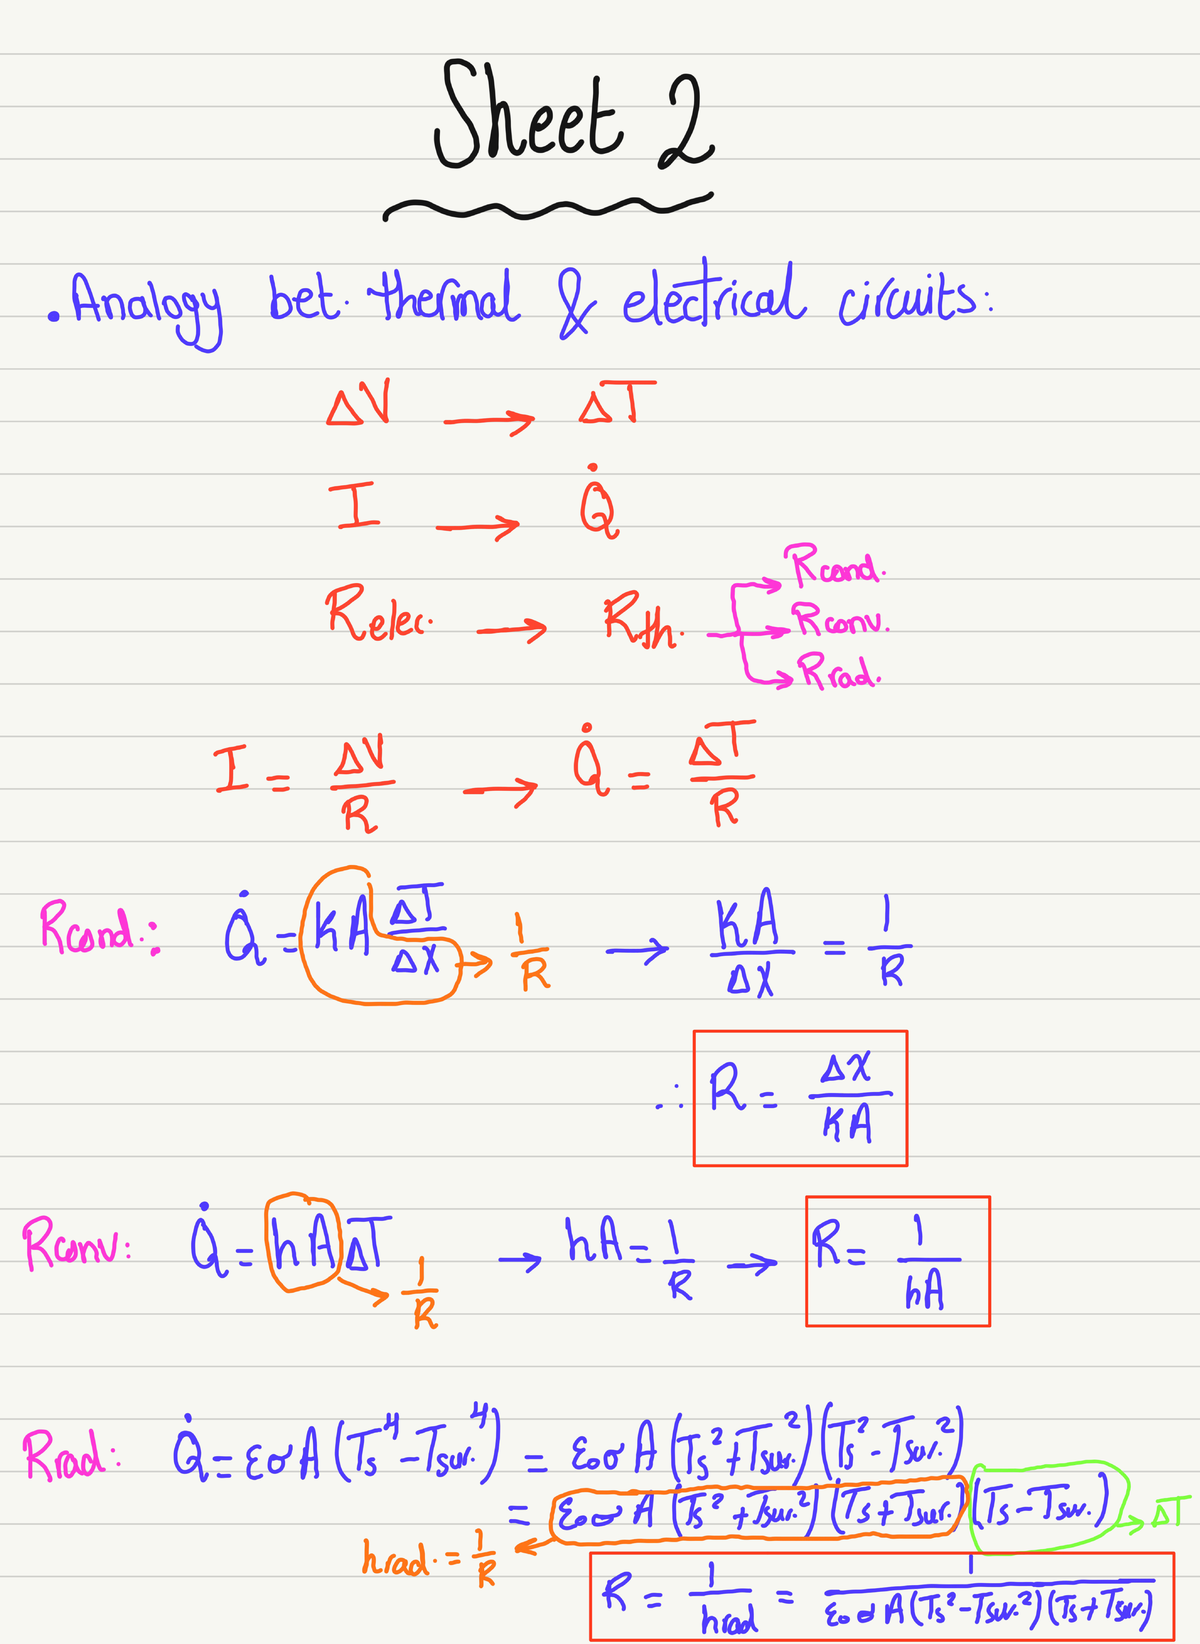 Sheet 2
. Analogy bet. thermal & electrical circuits:
ΔV → ΔT
I → Q̇
Relec. → Rth. → Rcond.
→ Rconv.
→ Rrad.
I = ΔV/R → Q̇ = ΔT/R
Rcond.: Q̇ = kA ΔT/ΔX → 1/R → KA/ΔX = 1/R
∴ R = ΔX/KA
Rconv: Q̇ = hA ΔT → 1/R → hA = 1/R → R = 1/hA
Rrad: Q̇ = εσA(Ts⁴ - Tsur.⁴) = εσA(Ts² + Tsur.²)(Ts² - Tsur.²)
= εσA(Ts² + Tsur.²)(Ts + Tsur.)(Ts - Tsur.) → ΔT
hrad. = 1/R ←
R = 1/hrad = 1/εσA(Ts² - Tsur.²)(Ts + Tsur.)